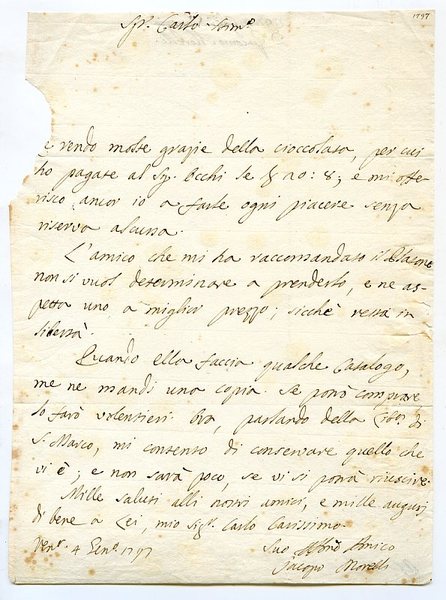 1797
Sigr. Carlo Stimo
e rendo molte grazie della cioccolata, per cui
ho pagate al Sig. Occhi le £ 20: 8; e mi offe-
risco ancor io a farle ogni piacere senza
riserva alcuna.
L'amico che mi ha raccomandato il Platone
non si vuol determinare a prenderlo, e ne as-
petta uno a miglior prezzo; sicchè resta in
libertà.
Quando ella faccia qualche Catalogo,
me ne mandi una copia. Se potrò comprare
lo farò volentieri. Ora, parlando della di
S. Marco, mi contento di conservare quello che
vi è; e non sarà poco, se vi si potrà riuscire.
Mille saluti alli nostri amici, e mille auguri
di bene a Lei, mio Sigr. Carlo Carissimo.
Ven. 4 Genn. 1797
Suo Affmo Amico
Jacopo Morelli